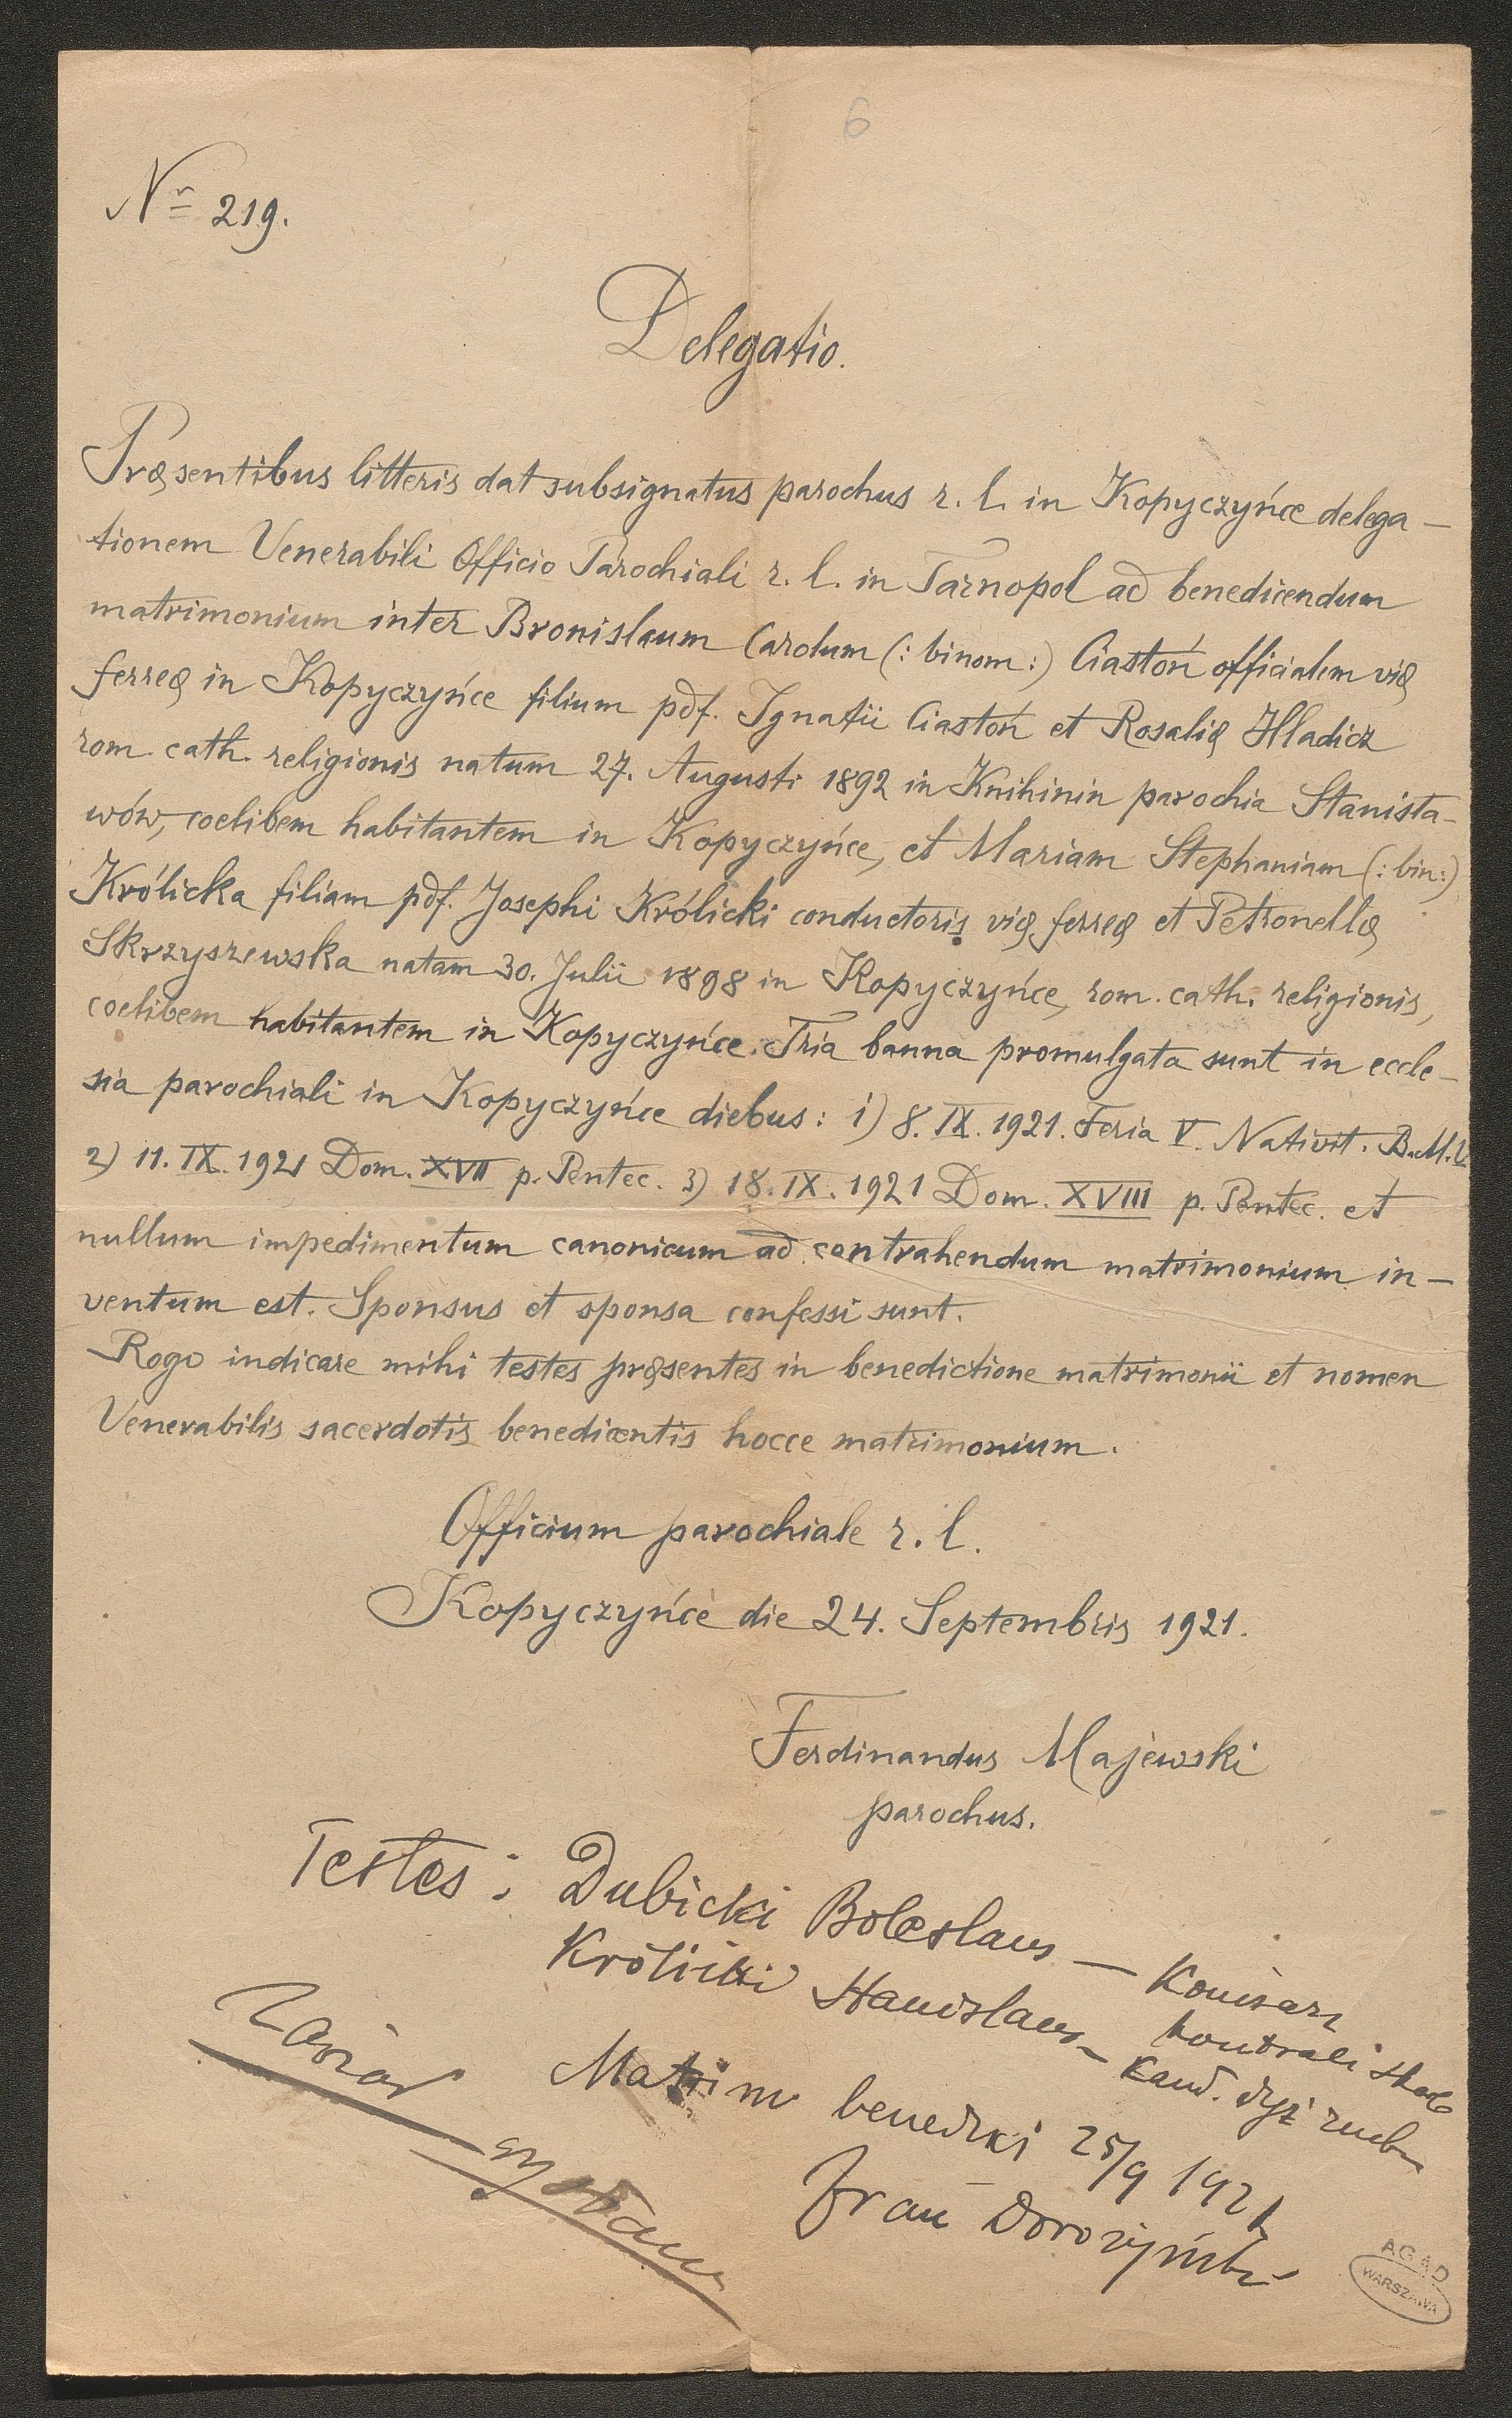 6
Nr 219.
Delegatio.
Præsentibus litteris dat subsignatus parochus r. l. in Kopyczyńce delega-
tionem Venerabili Officio Parochiali r. l. in Tarnopol ad benedicendum
matrimonium inter Bronislaum Carolum (: binom :) Ciastoń officialem viæ
ferreæ in Kopyczyńce filium pdf. Ignatii Ciastoń et Rosaliæ Hladicz
rom. cath. religionis natum 27. Augusti 1892 in Knihinin parochia Stanisła-
wów, coelibem habitantem in Kopyczyńce, et Mariam Stephaniam (: bin:)
Królicka filiam pdf. Josephi Królicki conductoris viæ ferreæ et Petronellæ
Skrzyszewska natam 30. Julii 1898 in Kopyczyńce, rom. cath. religionis,
coelibem habitantem in Kopyczyńce. Tria banna promulgata sunt in eccle-
sia parochiali in Kopyczyńce diebus: 1) 8. IX. 1921. Feria V. Nativit. B.M.V.
2) 11. IX. 1921 Dom. XVII p. Pentec. 3) 18. IX. 1921 Dom. XVIII p. Pentec. et
nullum impedimentum canonicum ad contrahendum matrimonium in-
ventum est. Sponsus et sponsa confessi sunt.
Rogo indicare mihi testes præsentes in benedictione matrimonii et nomen
Venerabilis sacerdotis benedicentis hocce matrimonium.
Officium parochiale r. l.
Kopyczyńce die 24. Septembris 1921.
Ferdinandus Majewski
parochus.
Testes: Dubicki Boleslaus — Komisarz
kontroli skarb
Królicki Stanislaus —
Matrim benedixi 25/9 1921
AGAD
WARSZAWA